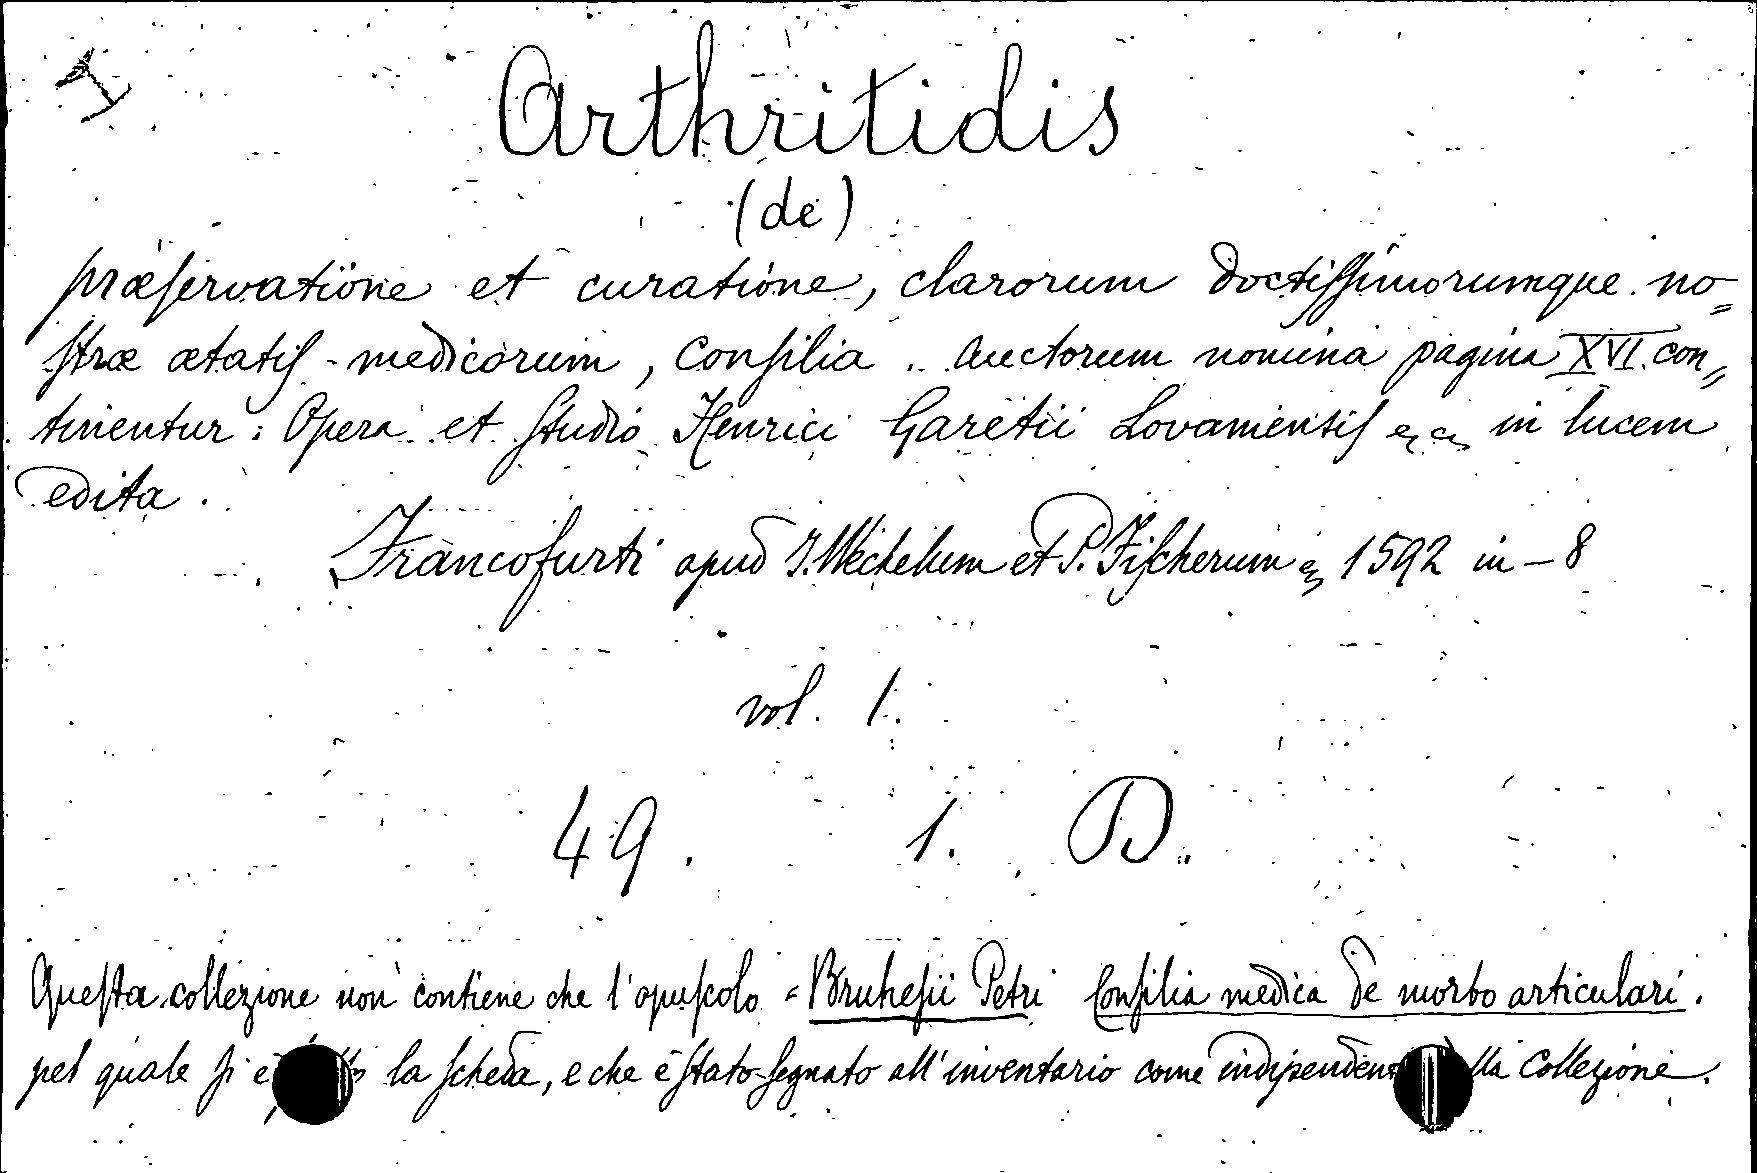 Arthritidis
(de)
præservatione et curatione, clarorum doctissimorumque no=
stræ ætatis medicorum, Consilia. Auctorum nomina pagina XVI. con=
tinentur: Opera et Studio Henrici Garetii Lovaniensis in lucem
edita.
Francofurti apud J. Wechelum et P. Fischerum 1592 in-8
vol. 1.
49. 1. D.
Questa collezione non contiene che l'opuscolo = Bruhesii Petri Consilia medica de morbo articulari.
pel quale si è la scheda, e che è stato segnato all'inventario come collezione.